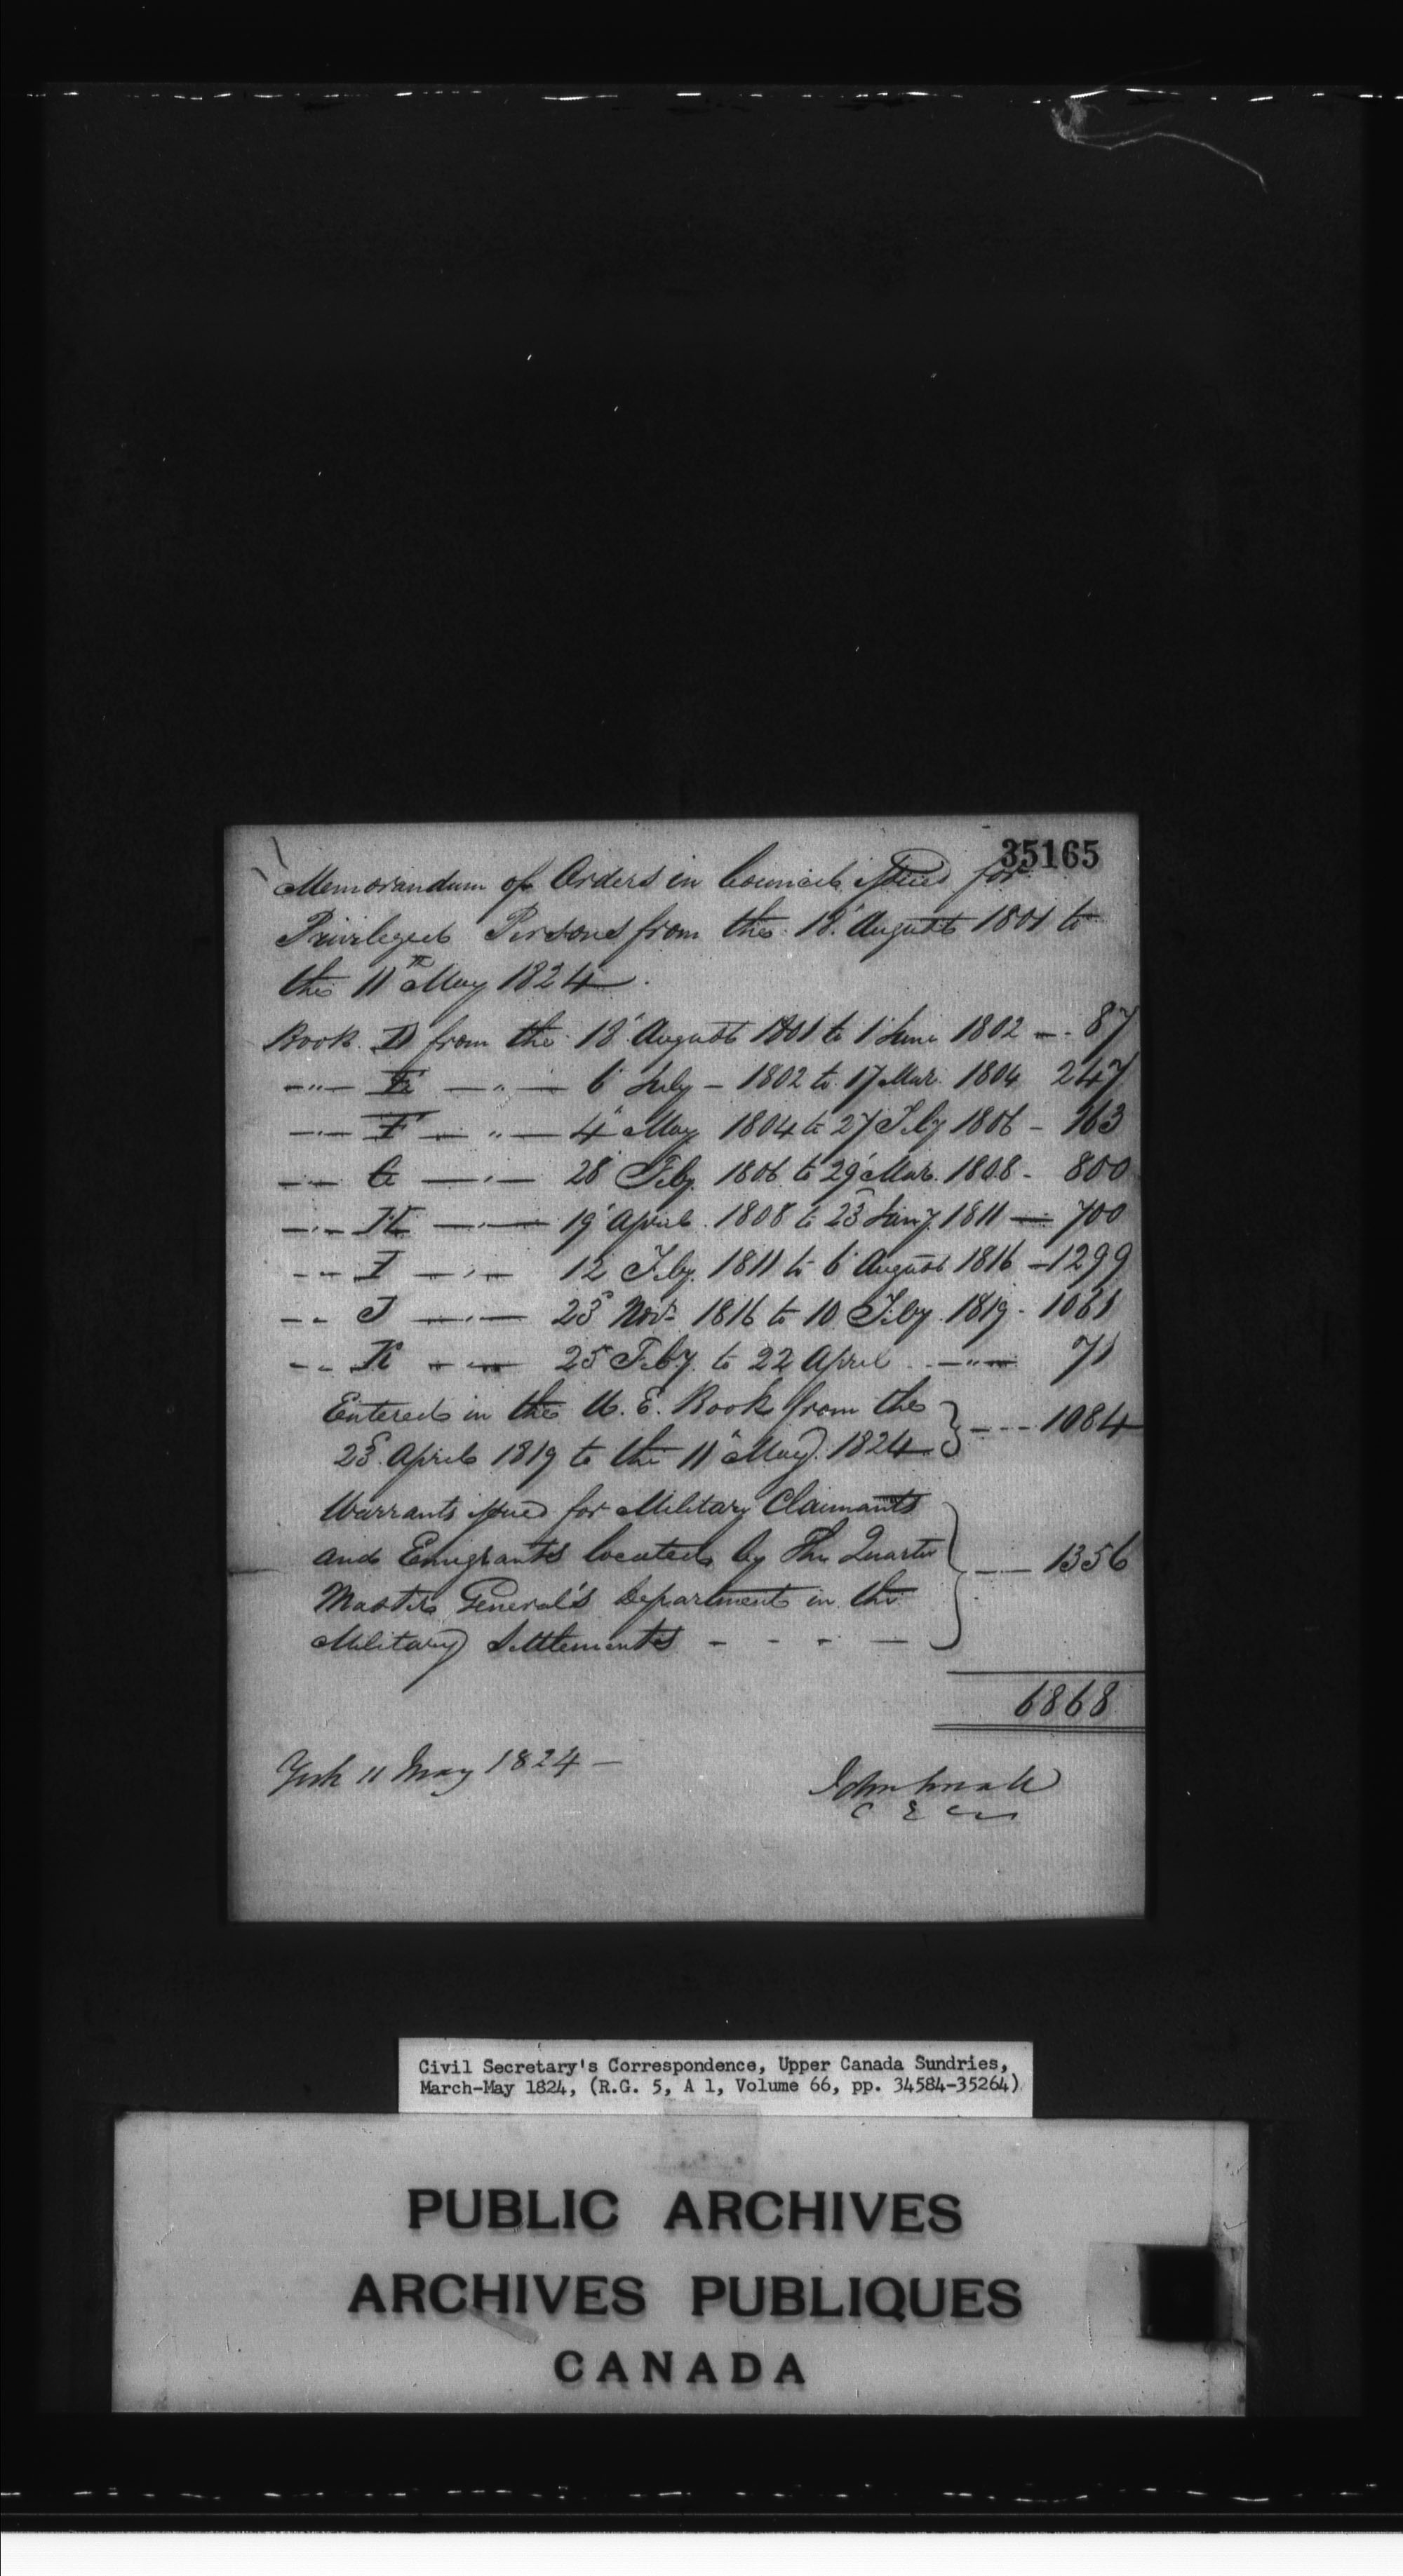 35165
Memorandum of Orders in Council issued for
Privileged Persons from the 18 August 1801 to
the 11th May 1824.
Book D from the 18 August 1801 to 1 June 1802 — - 87
-"- E — " — 6 July - 1802 to 17 Mar. 1804 247
-"- F — " — 4 May 1804 to 27 Feby 1806 - 163
-"- G — " — 28 Feby. 1806 to 29 Mar. 1808 - 800
-"- H — " — 19 April 1808 to 23 Jany. 1811 — 700
- - I — " — 12 Feby. 1811 to 6 August 1816 - 1299
- - J — " — 23 Novr 1816 to 10 Feby. 1819 - 1061
- - K — " — 25 Feby. to 22 April - — " — 71
Entered in the U. E. Book from the
23 April 1819 to the 11 May 1824 } - - - 1084
Warrants issued for Military Claimants
and Emigrants located by The Quarter } - — 1356
Master General's Department in the
Military Settlements - - - —
6868
York 11 May 1824 —
John Small
C E C
Civil Secretary's Correspondence, Upper Canada Sundries,
March-May 1824, (R.G. 5, A 1, Volume 66, pp. 34584-35264)
PUBLIC ARCHIVES
ARCHIVES PUBLIQUES
CANADA